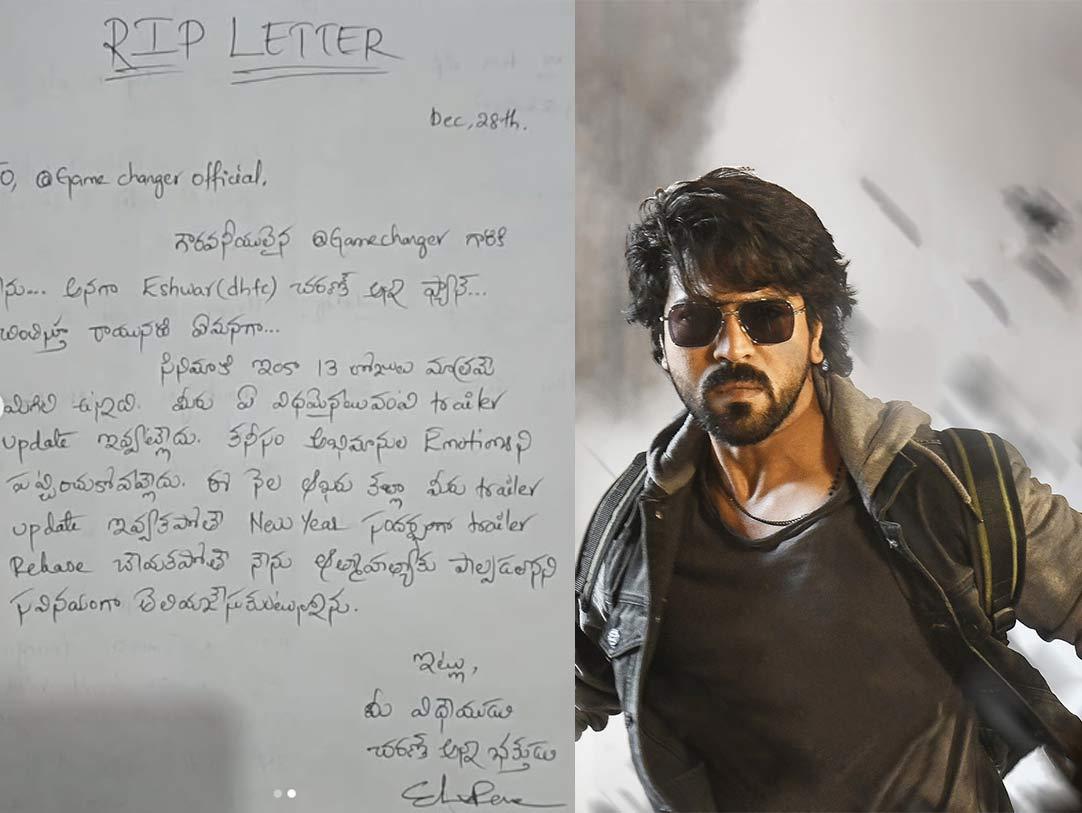 RIP LETTER
Dec, 28th.
TO, @Game changer official.
గౌరవనీయులైన @Gamechanger గారికి
నేను... అనగా Eshwar(dhfc) చరణ్ అన్న ఫ్యాన్...
చింతిస్తూ రాయునది ఏమనగా...
సినిమాకి ఇంకా 13 రోజులు మాత్రమే
మిగిలి ఉన్నది. మీరు ఏ విధమైనటువంటి trailer
update ఇవ్వట్లేదు. కనీసం అభిమానుల Emotionsని
పట్టించుకోవట్లేదు. ఈ నెల ఆఖరు కల్లా మీరు trailer
update ఇవ్వకపోతే New Year సందర్భంగా trailer
Rehase చేయకపోతే నేను ఆత్మాహత్యకు పాల్పడతానని
సవినయంగా తెలియజేసుకుంటున్నాను.
ఇట్లు,
మీ విధేయుడు
చరణ్ అన్న భక్తుడు